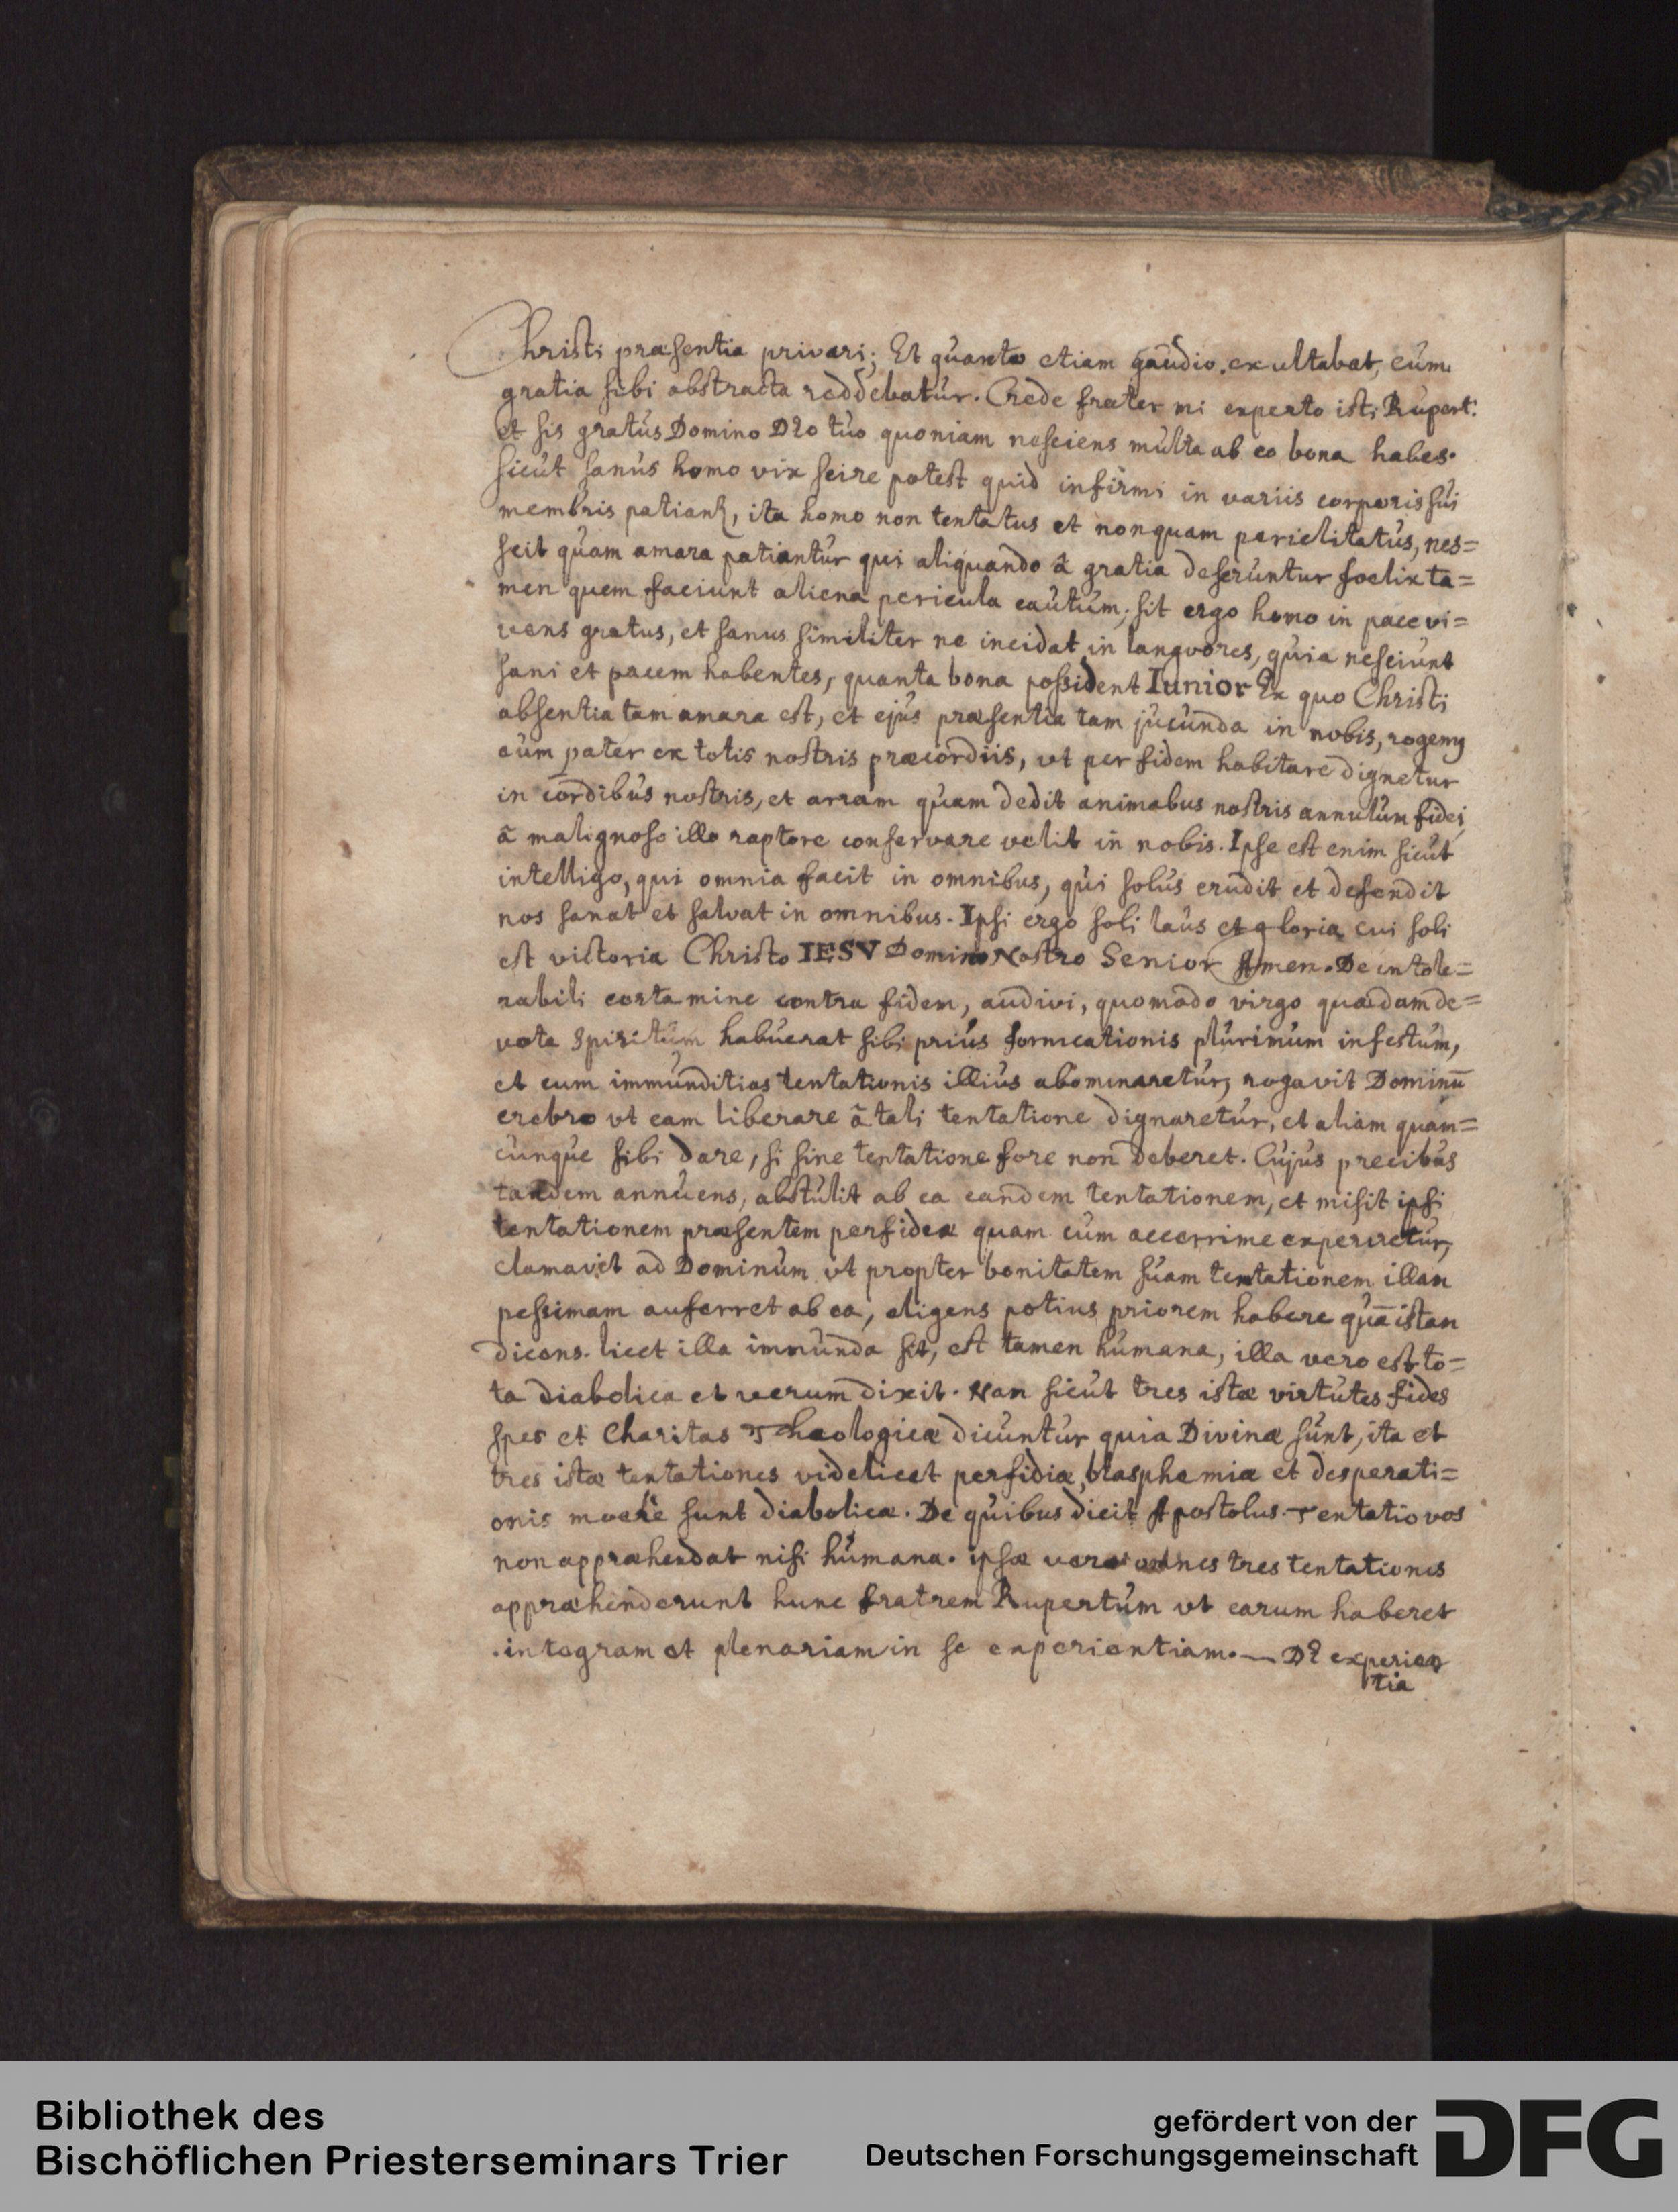 Christi præsentia privari; Et quanto etiam gaudio exultabat, cum
gratia sibi abstracta reddebatur. Crede frater mi experto isti Rupert:
et sis gratus Domino Deo tuo quoniam nesciens multa ab eo bona habes.
sicut sanus homo vix scire potest quid infirmi in variis corporis sui
membris patiant, ita homo non tentatus et nonquam periclitatus, nes=
scit quam amara patiantur qui aliquando â gratia deseruntur foelix ta=
men quem faciunt aliena pericula cautum; sit ergo homo in pace vi=
vens gratus, et sanus similiter ne incidat in langvores, quia nesciunt
sani et pacem habentes, quanta bona possident Iunior Ex quo Christi
absentia tam amara est, et ejus præsentia tam jucunda in nobis, rogemus
eum pater ex totis nostris præcordiis, vt per fidem habitare dignetur
in cordibus nostris, et arram quam dedit animabus nostris annulum fidei
â malignoso illo raptore conservare velit in nobis. Ipse est enim sicut
intelligo, qui omnia facit in omnibus, qui solus erudit et defendit
nos sanat et salvat in omnibus. Ipsi ergo soli laus et gloria cui soli
est victoria Christo IESV Domino Nostro Senior Amen. De intole=
rabili certamine contra fidem, audivi, quomodo virgo quædam de=
vota Spiritum habuerat sibi prius fornicationis plurimum infestum,
et cum immunditias tentationis illius abominaretur, rogavit Dominū
crebro vt eam liberare â tali tentatione dignaretur, et aliam quam=
cunque sibi dare, si sine tentatione fore non deberet. Cujus precibus
tandem annuens, abstulit ab ea eandem tentationem, et misit ipsi
tentationem præsentem perfideæ quam cum accerrime experiretur,
clamavit ad Dominum vt propter bonitatem suam tentationem illam
pessimam auferret ab ea, eligens potius priorem habere quā istam
dicens. licet illa immunda sit, est tamen humana, illa vero est to=
ta diabolica et verum dixit. Nam sicut tres istæ virtutes fides
spes et Charitas Theologicæ dicuntur quia Divinæ sunt, ita et
tres istæ tentationes videlicet perfidiæ, blasphemiæ et desperati=
onis sunt diabolicæ. De quibus dicit Apostolus. Tentatio vos
non appræhendat nisi humana. ipsæ vero omnes tres tentationes
appræhenderunt hunc fratrem Rupertum vt earum haberet
integram et plenariam in se experientiam. — De experien
tia
Bibliothek des
Bischöflichen Priesterseminars Trier
gefördert von der
Deutschen Forschungsgemeinschaft
DFG